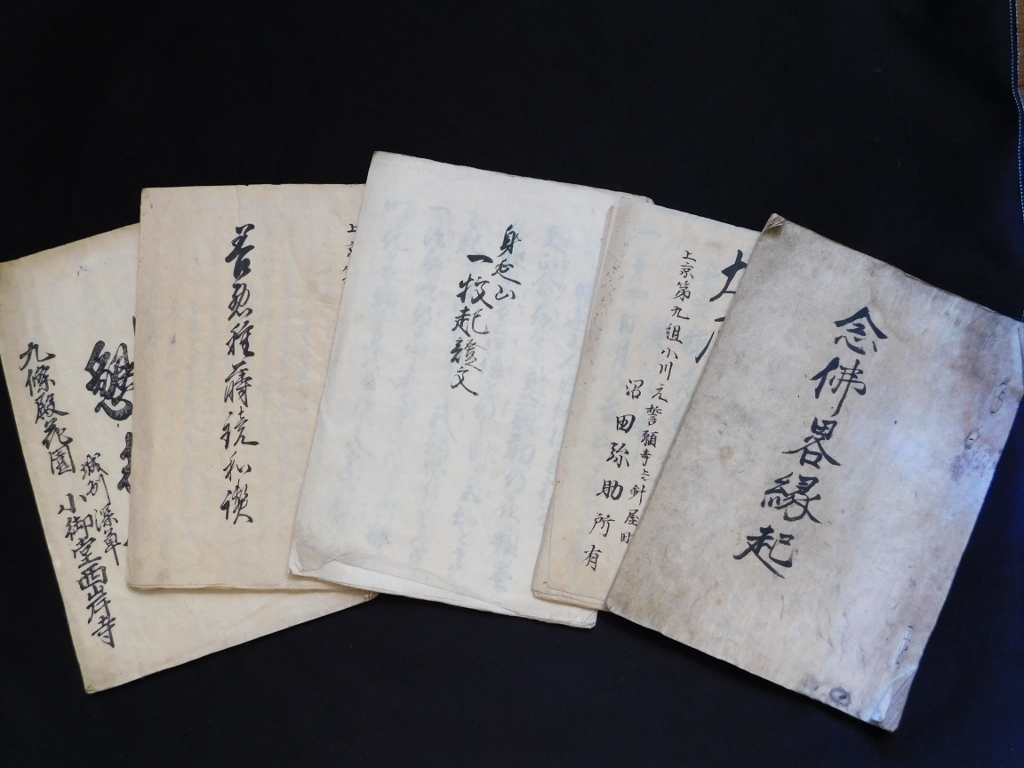 念佛畧縁起
上京第九組小川元誓願寺上針屋町
沼田弥助所有
身延山
一枚起證文
善悪種蒔鏡和讃
上京
城州深草
九條殿花園 小御堂西岸寺